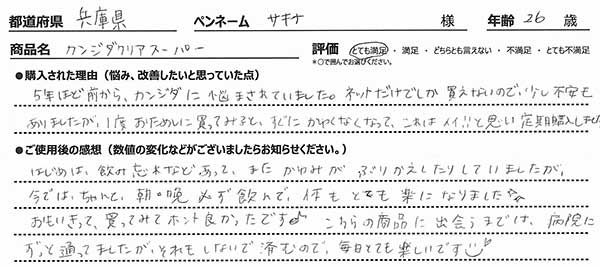 都道府県 兵庫県 ペンネーム サキナ 様 年齢 26 歳
商品名 カンジダクリアスーパー 評価 とても満足・満足・どちらとも言えない・不満足・とても不満足
*○で囲んでお選びください。
●購入された理由（悩み、改善したいと思っていた点）
5年ほど前から、カンジダに悩まされていました。ネットだけでしか買えないので、少し不安も
ありましたが、1度おためしに買ってみると、すぐにかゆくなくなって、これはイイ!!と思い定期購入しました
●ご使用後の感想（数値の変化などがございましたらお知らせください。）
はじめは、飲み忘れなどあって、またかゆみがぶりかえしたりしていましたが、
今では、ちゃんと、朝・晩必ず飲んで、体もとても楽になりました
おもいきって、買ってみてホント良かったです こちらの商品に出会うまでは、病院に
ずっと通ってましたが、それもしないで済むので、毎日とても楽しいです